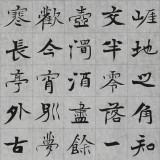 崕地之角知
交半零落一
壺濁酒盡餘
歡今宵別夢
寒長亭外古